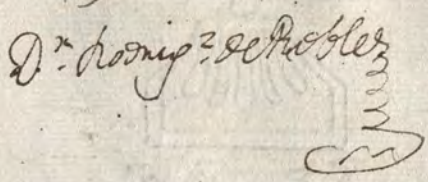 D.n Rodrig.z de Robles